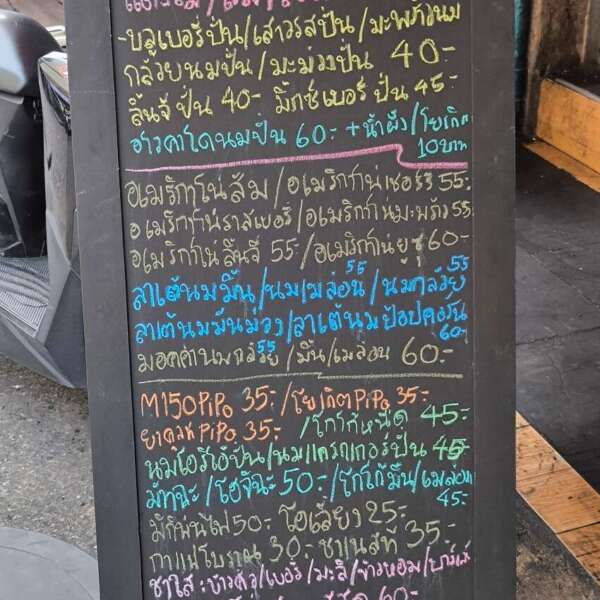 -บลูเบอรี่ปั่น/เสาวรสปั่น/มะพร้าวนม
กล้วยนมปั่น/มะม่วงปั่น 40.-
ลิ้นจี่ ปั่น 40.- มิ๊กซ์เบอรี่ ปั่น 45.-
อาโวคาโดนมปั่น 60.- +น้ำผึ้ง/โยเกิต
10บาท
อเมริกาโน่ส้ม/อเมริกาโน่เชอรี่ 55.-
อเมริกาโน่ราสเบอรี่/อเมริกาโน่มะพร้าว 55
อเมริกาโน่ลิ้นจี่ 55.-/อเมริกาโน่ยูซุ 60.-
ลาเต้นมมิ้น/นมเมล่อน 55/นมกล้วย 55
ลาเต้นมมันม่วง/ลาเต้นมป๊อปคอร์น
60.-
มอคค่านมกล้วย 55/มิ้น/เมล่อน 60.-
M150PiPo 35.-/โยเกิตPiPo 35.-
ยาคูลท์PiPo 35.-/โกโก้หนึด 45.-
นมโอริโอ้ปั่น/นมแครกเกอร์ปั่น 45
มัทฉะ/โฮจิฉะ 50.-/โกโก้มิ้น/เมล่อน
45.-
มัทฉะ 50.- โอเลี้ยง 25.-
กาแฟโบราณ 30.- ชาเนสที 35.-
ชาใส: